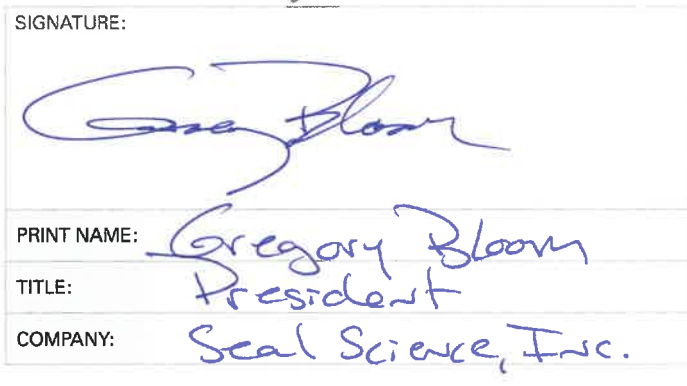 SIGNATURE:
Greg Bloom
PRINT NAME: Gregory Bloom
TITLE: President
COMPANY: Seal Science, Inc.